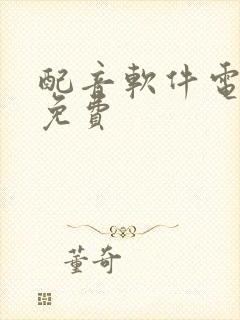 配音軟件電
免費
董奇